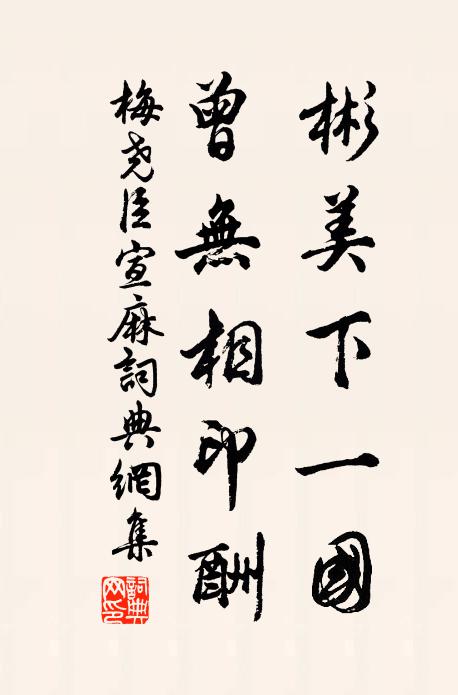 彬美下一國
曾無相印酬
梅堯臣宣麻詞典網集
詞典網印